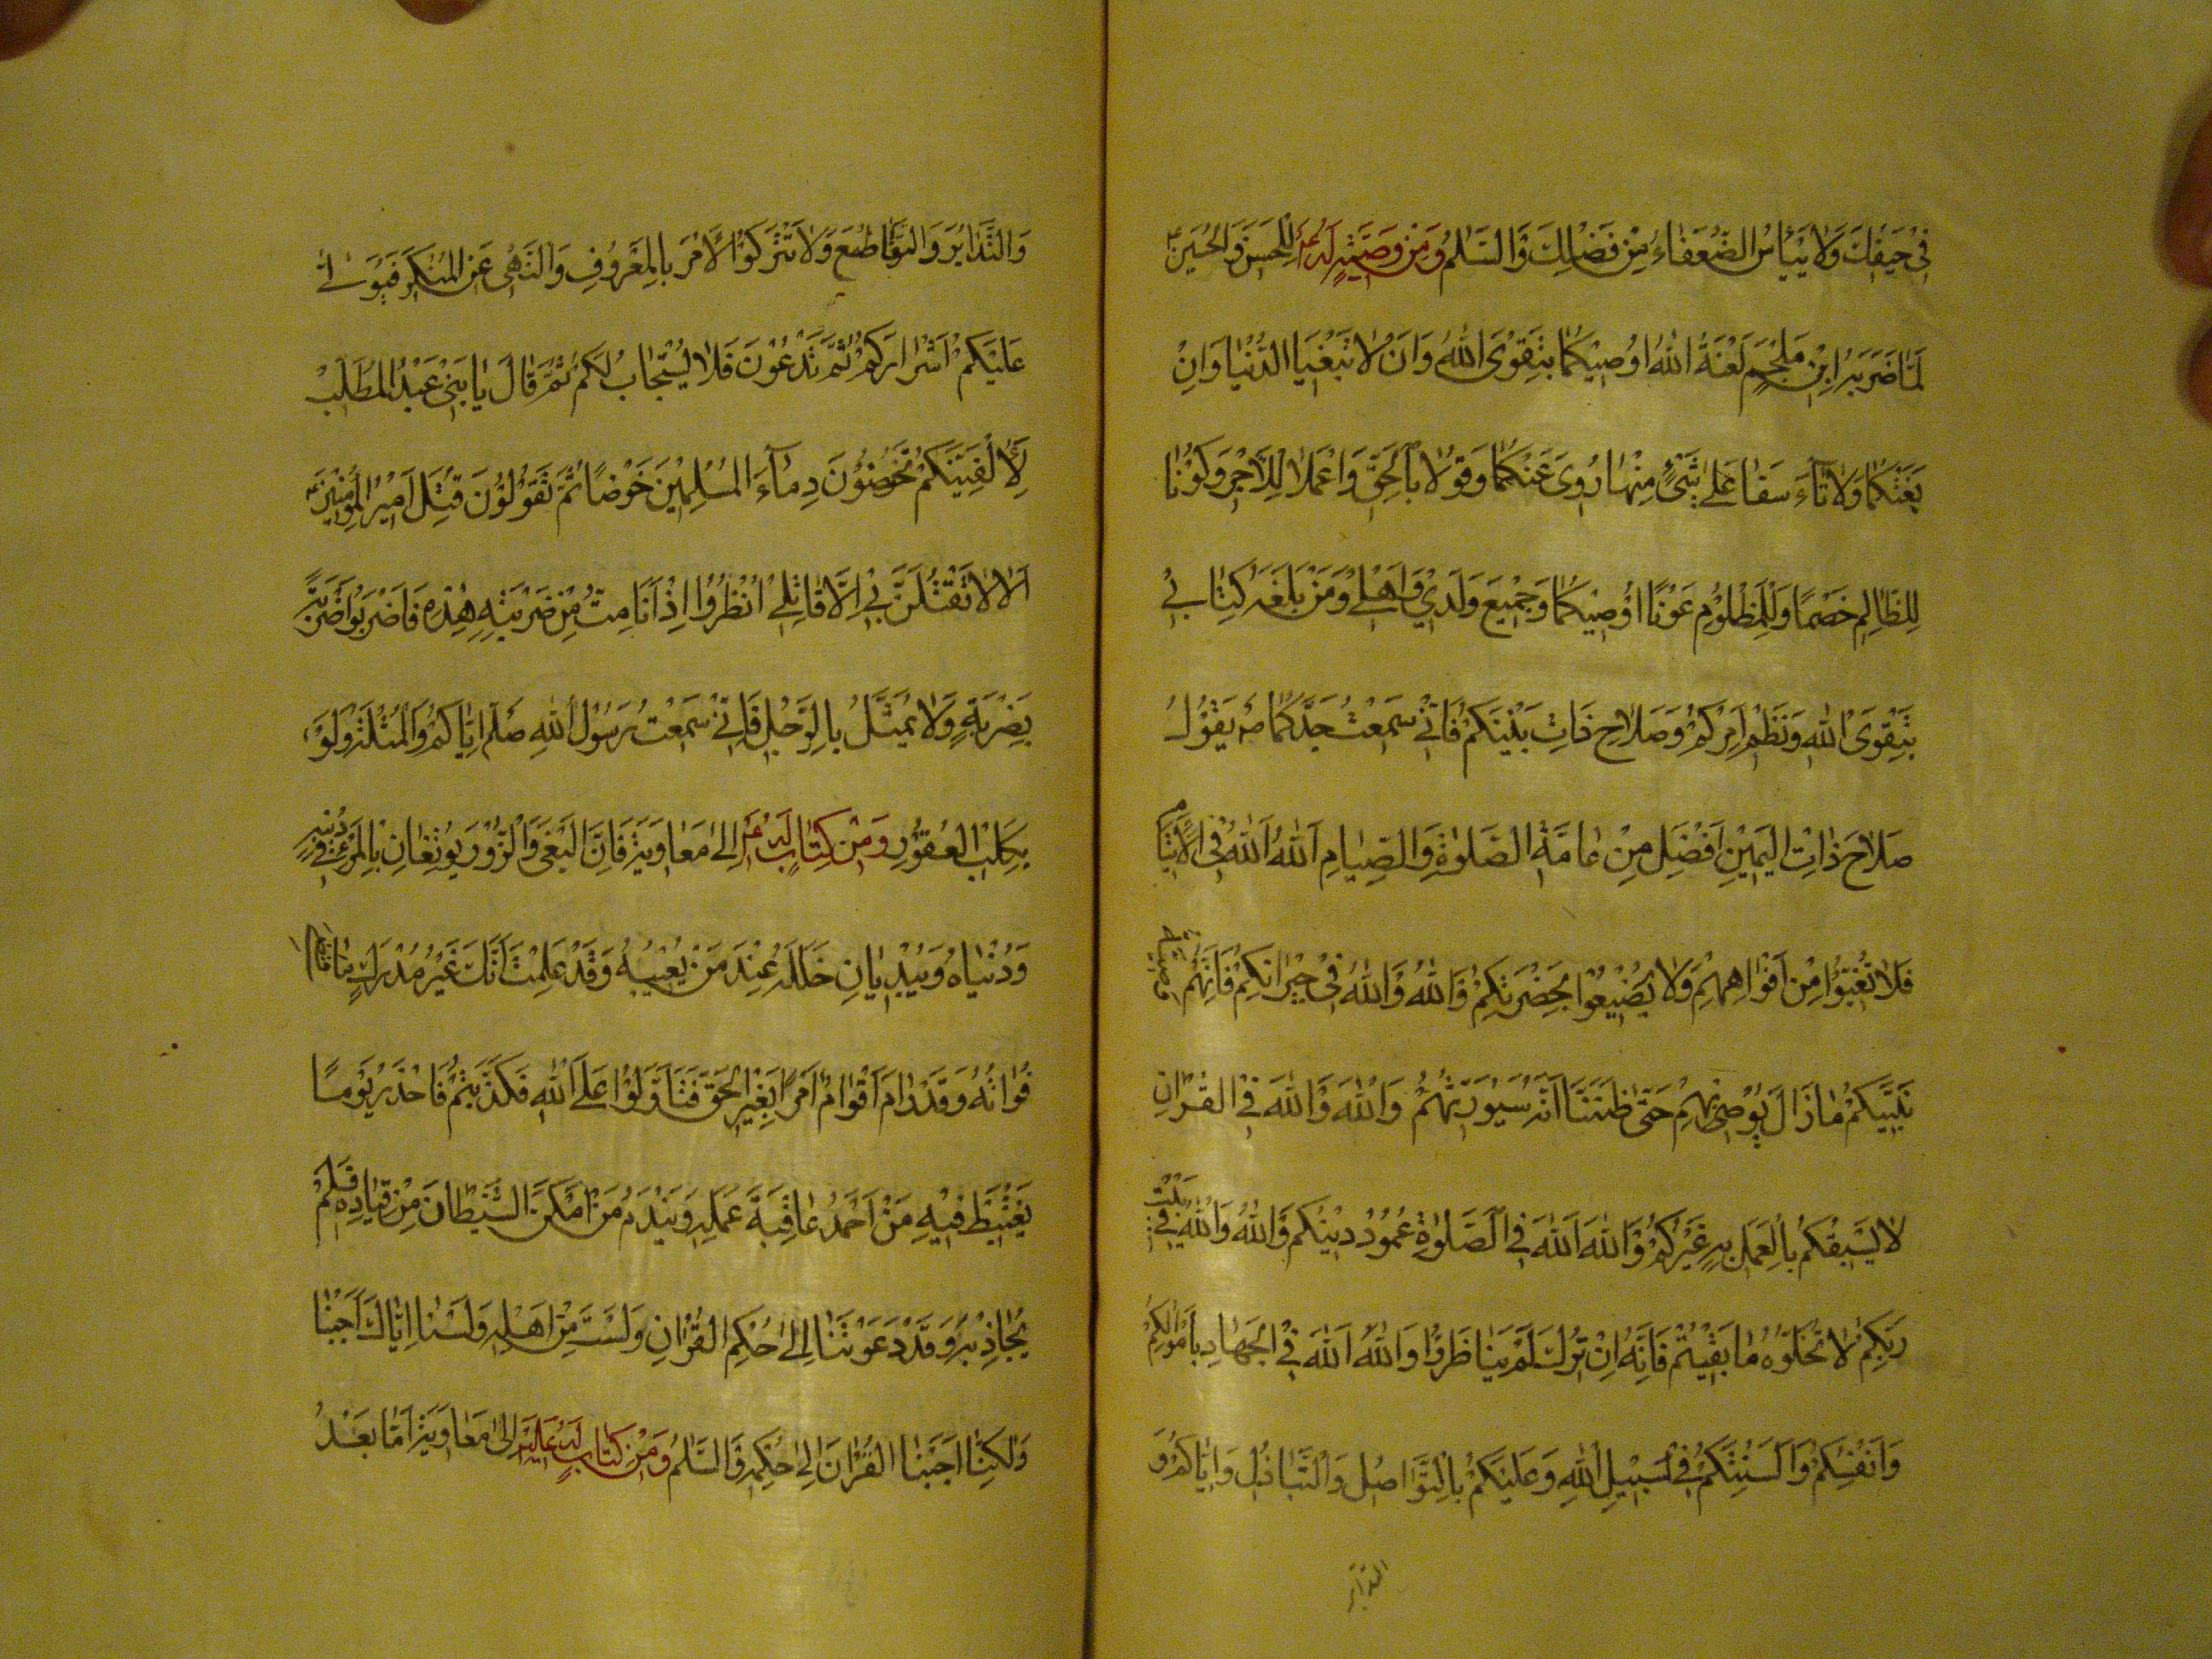 في حيفك ولا ييأس الضعفاء من فضلك والسلم ومن وصيته له للحسن والحسين
لما ضربه ابن ملجم لعنة الله اوصيكما بتقوى الله وان لا تبغيا الدنيا وان
بغتكما ولا تاسفا على شئ منها زوى عنكما وقولا بالحق واعملا للاجر وكونا
للظالم خصما وللمظلوم عونا اوصيكما وجميع ولدي واهلي ومن بلغه كتابي
بتقوى الله ونظم امركم وصلاح ذات بينكم فاني سمعت جدكما ص يقول
صلاح ذات البين افضل من عامة الصلوة والصيام الله الله في الايتام
فلا تغبوا من افواههم ولا يضيعوا بحضرتكم والله والله في جيرانكم فانهم وصية
نبيكم ما زال يوصي بهم حتى ظننا انه سيورثهم والله والله في القران
لا يسبقكم بالعمل به غيركم والله الله في الصلوة عمود دينكم والله والله في بيت
ربكم لا تخلوه ما بقيتم فانه ان ترك لم يناظروا والله الله في الجهاد باموالكم
وانفسكم والسنتكم في سبيل الله وعليكم بالتواصل والتباذل واياكم و
التدابر
والتدابر والتقاطع ولا تتركوا الامر بالمعروف والنهى عن المنكر فيولى
عليكم اشراركم ثم تدعون فلا يستجاب لكم ثم قال يا بني عبد المطلب
لا لفينكم تخوضون دماء المسلمين خوضا ثم تقولون قتل امير المؤمنين
الا لا تقتلن بي الا قاتلي انظروا اذ انا مت من ضربته هذه فاضربوا ضربة
بضربة ولا يمثل بالرجل فاني سمعت رسول الله صلم اياكم والمثلة ولو
بكلب العقور ومن كتاب له الى معاوية فان البغي والزور يوتغان بالمرء في دينه
ودنياه ويبديان خلله عند من يعيبه وقد علمت انك غير مدرك ما قضى
فواته وقد رام اقوام امرا بغير الحق فتاولوا على الله فكذبهم فاحذر يوما
يغتبط فيه من احمد عاقبة عمله ويندم من امكن الشيطان من قياده فلم
يجاذبه وقد دعوتنا الى حكم القران ولست من اهله ولسنا اياك اجبنا
ولكنا اجبنا القران الى حكمه والسلم ومن كتاب له عليه الى معاوية اما بعد